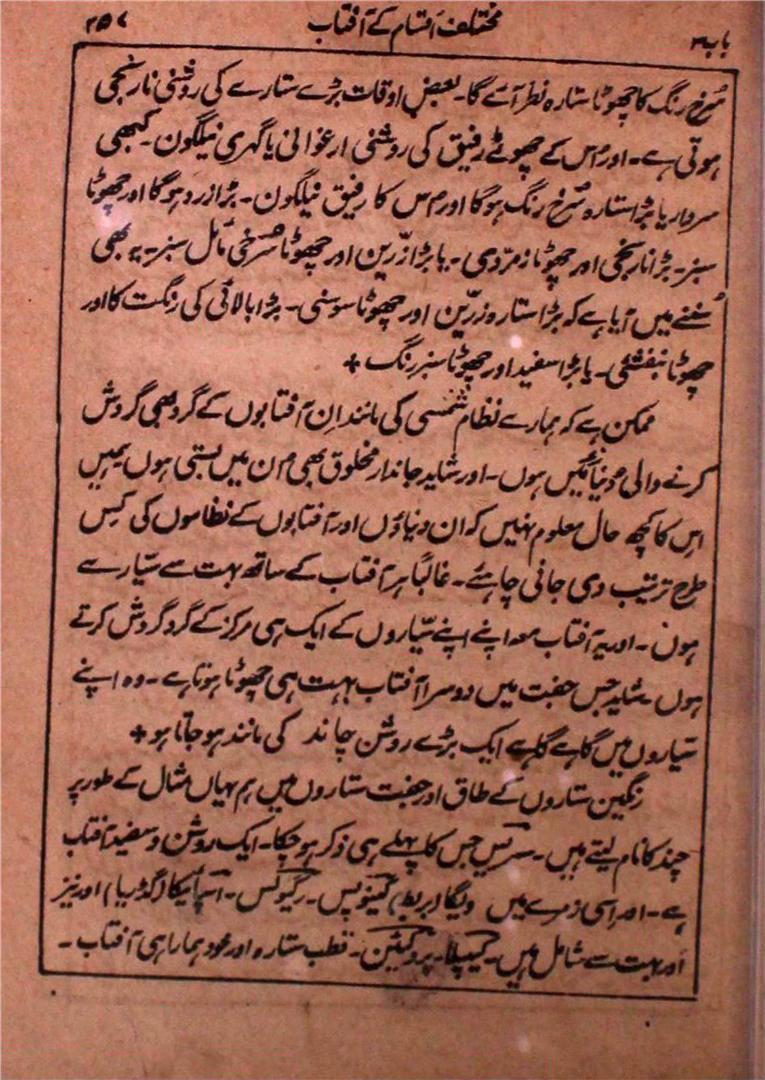 باب ۳ مختلف اقسام کے آفتاب ۲۵۷
سُرخ رنگ کا چھوٹا ستارہ نظر آئے گا۔ بعض اوقات بڑے ستارے کی روشنی نارنجی
ہوتی ہے۔ اور اُس کے چھوٹے رفیق کی روشنی ارغوانی یا گہری نیلگون۔ کبھی
سردار یا بڑا ستارہ سُرخ رنگ ہوگا اور اُس کا رفیق نیلگون۔ بڑا زرد ہوگا اور چھوٹا
سبز۔ بڑا نارنجی اور چھوٹا زمرّدی۔ یا بڑا زرّین اور چھوٹا سُرخی مائل سبز۔ یہ بھی
سُننے میں آیا ہے کہ بڑا ستارہ زرّین اور چھوٹا سوسنی۔ بڑا بالائی کی رنگت کا اور
چھوٹا بنفشئی۔ یا بڑا سفید اور چھوٹا سبز رنگ +
ممکن ہے کہ ہمارے نظام شمسی کی مانند اِن آفتابوں کے گرد بھی گردش
کرنے والی دُنیائیں ہوں۔ اور شاید جاندار مخلوق بھی اُن میں بستی ہوں ہمیں
اِس کا کچھ حال معلوم نہیں کہ ان دنیاؤں اور آفتابوں کے نظاموں کی کِس
طرح ترتیب دی جانی چاہئے۔ غالباً ہر آفتاب کے ساتھ بہت سے سیّارے
ہوں۔ اور یہ آفتاب معہ اپنے اپنے سیّاروں کے ایک ہی مرکز کے گرد گردش کرتے
ہوں۔ شاید جس جفت میں دوسرا آفتاب بہت ہی چھوٹا ہوتا ہے۔ وہ اپنے
سیّاروں میں گاہے گاہے ایک بڑے روشن چاند کی مانند ہو جاتا ہو +
رنگین ستاروں کے طاق اور جفت ستاروں میں ہم یہاں مثال کے طور پر
چند کا نام لیتے ہیں۔ سریس جس کا پہلے ہی ذکر ہو چکا۔ ایک روشن و سفید آفتاب
ہے۔ اور اِسی زمرے میں ویگا (بربط) کینوپس۔ رگیولس۔ اسپائیکا (گڈریا) اور نیز
اور بہت سے شامل ہیں۔ کیپلا۔ پروکئین۔ قطب ستارہ اور خود ہمارا ہی آفتاب۔